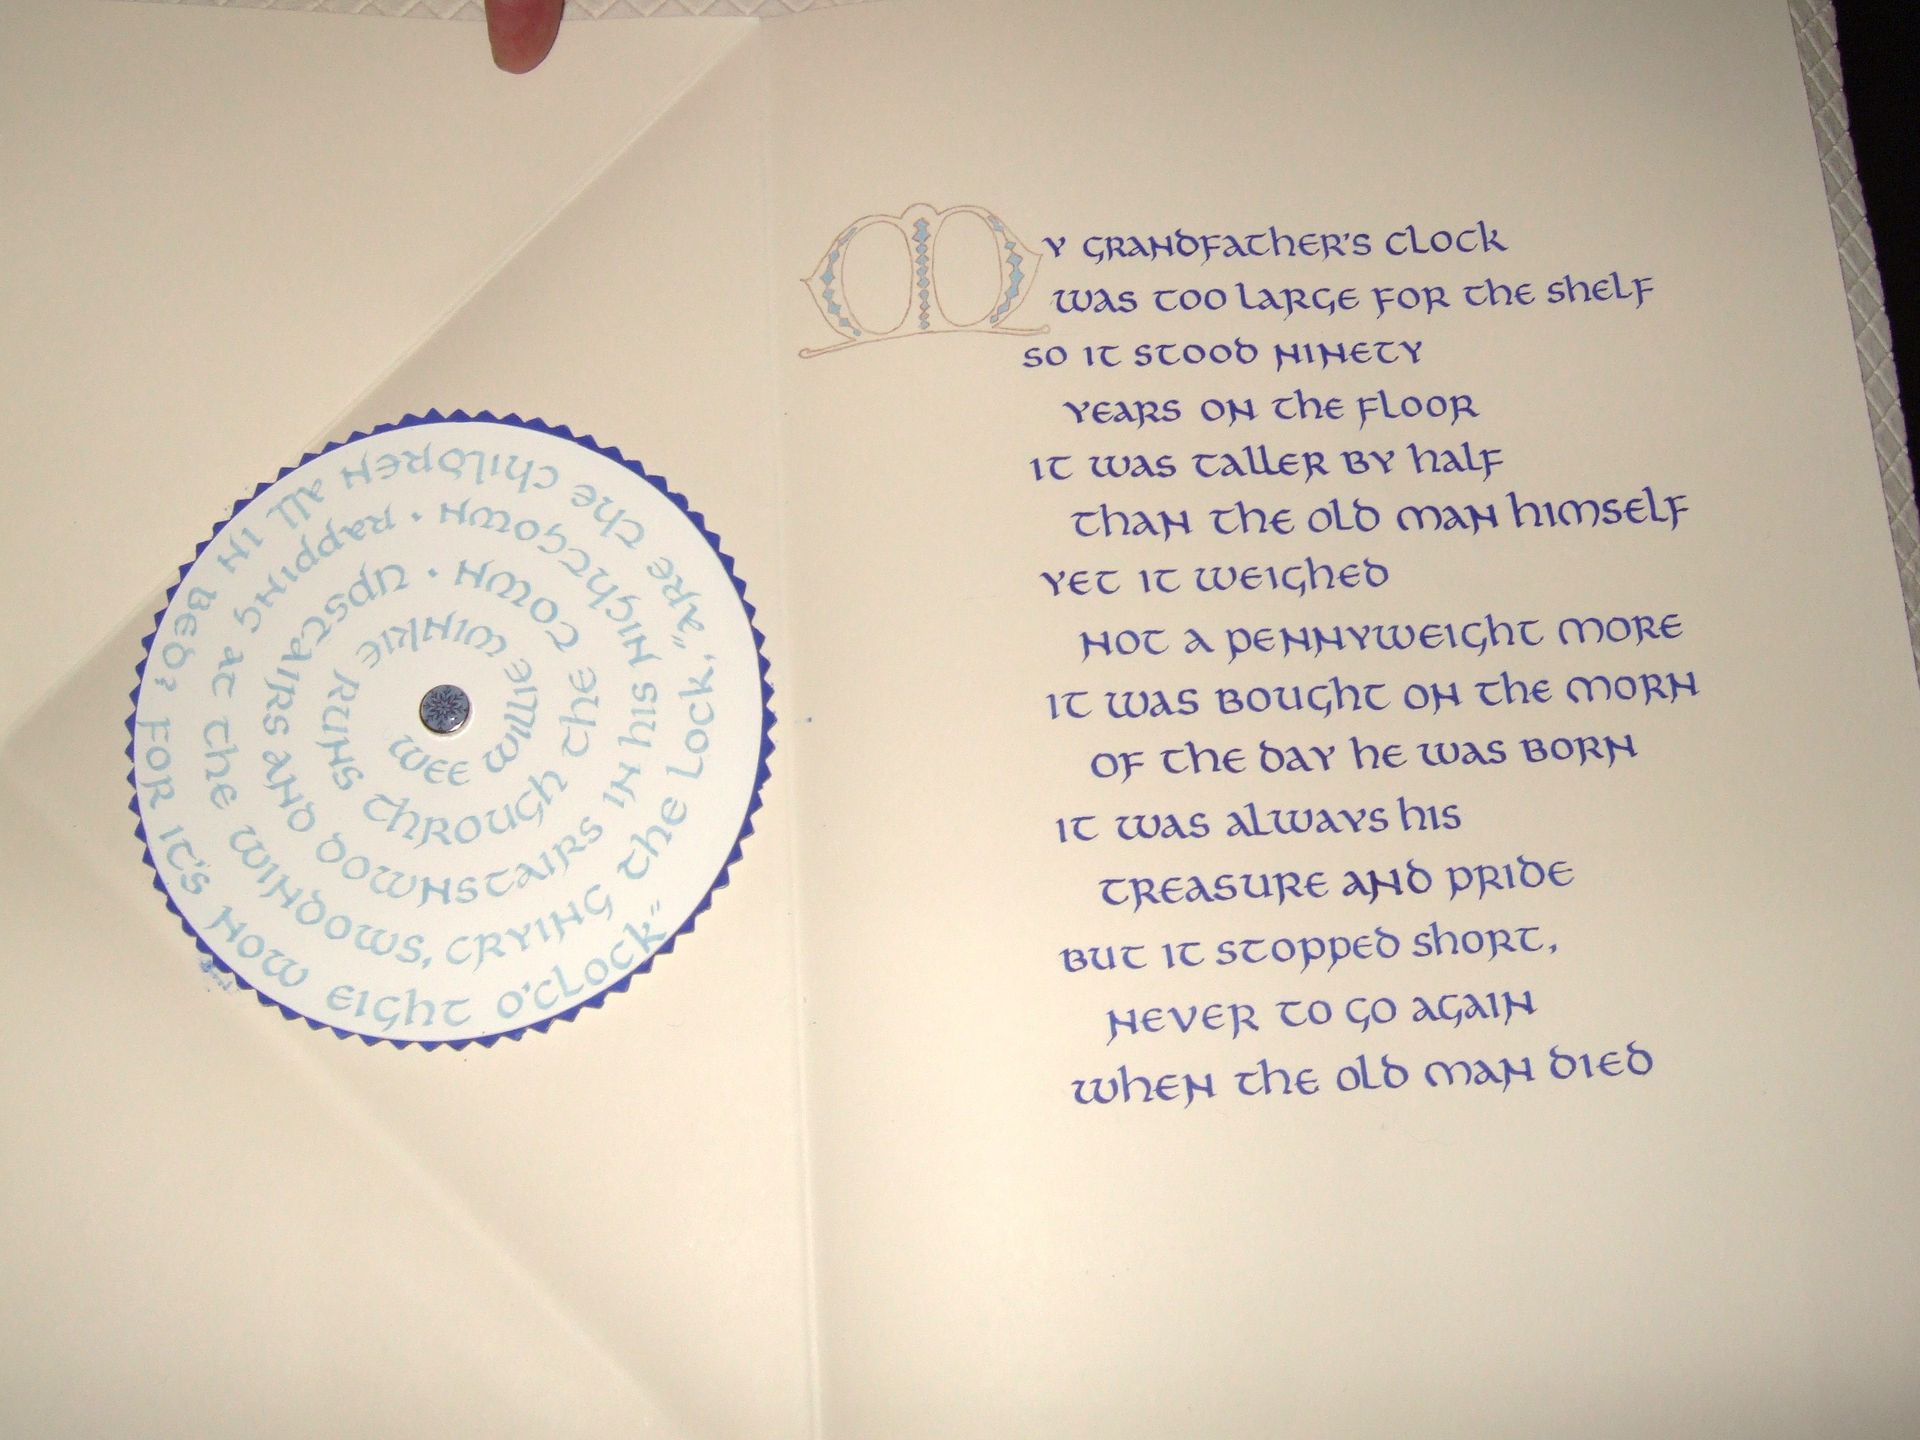 WEE WILLIE WINKIE RUNS THROUGH THE TOWN · UPSTAIRS AND DOWNSTAIRS IN HIS NIGHTGOWN · RAPPING AT THE WINDOWS, CRYING THE LOCK, "ARE THE CHILDREN ALL IN BED? FOR IT'S NOW EIGHT O'CLOCK"
MY GRANDFATHER'S CLOCK
WAS TOO LARGE FOR THE SHELF
SO IT STOOD NINETY
YEARS ON THE FLOOR
IT WAS TALLER BY HALF
THAN THE OLD MAN HIMSELF
YET IT WEIGHED
NOT A PENNYWEIGHT MORE
IT WAS BOUGHT ON THE MORN
OF THE DAY HE WAS BORN
IT WAS ALWAYS HIS
TREASURE AND PRIDE
BUT IT STOPPED SHORT,
NEVER TO GO AGAIN
WHEN THE OLD MAN DIED